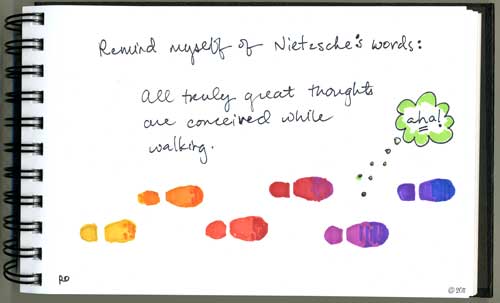 Remind myself of Nietzsche's words:
All truly great thoughts
are conceived while
walking.
aha!
RD
© 2011